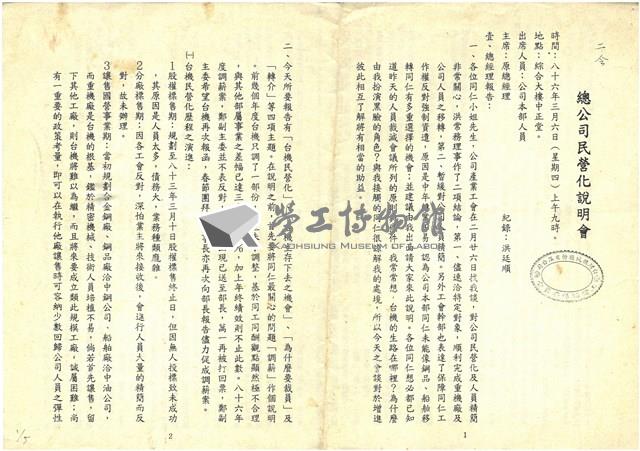 二仝
總公司民營化說明會
時間：八十六年三月六日（星期四）上午九時。
地點：綜合大樓中正堂。
出席人員：公司本部人員
主席：原總經理
紀錄：洪廷順
壹、總經理報告：
一、各位同仁小姐先生，公司產業工會在二月廿六日找我談，對公司民營化及人員精簡
非常關心，洪常務理事作了二項結論，第一、儘速洽特定對象，順利完成重機廠及
公司人員之移轉，第二、暫緩對
員精簡。另外工會幹部也表達了保障同仁工
作權反對強制資遣，原因是中年轉
易，認為公司本部同仁未能像鋼品、船舶移
轉同仁有多重選擇的機會；並建議由我出面請大家來此說明。各位同仁想必都已知
道昨天的人員裁減會議所列的原則
件
我常常想，台機的生路在哪裡？為什麼
由我扮演黑臉的角色？與我接觸的同仁很
解我的處境，所以今天之會談對於增進
彼此相互了解將有相當的助益。
1
二、今天所要報告有「台機民營化」
機
存下去之機會」、「為什麼要裁員」及
「轉介」等四項主題。在說明之前
首先要將同仁最關心的問題「調薪」作個說明
。前幾個年度台機只調了一部份，
調整，基於同工同酬觀點顯然極不合理
，與其他部屬事業之差幅已達三
%，加上年終績效則不止此數。八十六年
度調薪案，鄭副主委並不表反對，
現已送至部長，萬一再被打回票，鄭副
主委希望台機再次報函，春節團拜
長亦再次向部長報告儘力促成調薪案。
㈠台機民營化歷程之演進：
1股權標售期：規劃至八十三年三月十日股權標售終止日，但因無人投標致未成功
，其原因是人員太多，債務大，業務種類龐雜。
2分廠標售期：因各工會反對，深怕業主將來接收後，會逕行人員大量的精簡而反
對，故未辦理。
3讓售國營事業期：當初規劃合金鋼廠、鋼品廠洽中鋼公司、船舶廠洽中油公司，
而重機廠是台機的根基，鑑於精密機械、技術人員培植不易，倘若首先讓售，留
下其他工廠，則台機將難以為繼，而且將來要成立類此規模工廠，誠屬困難；尚
有一重要的政策考量，即可以在執行他廠讓售時可容納少數回歸公司人員之彈性
2
1/5
勞工博物館
KAOHSIUNG MUSEUM OF LABOR